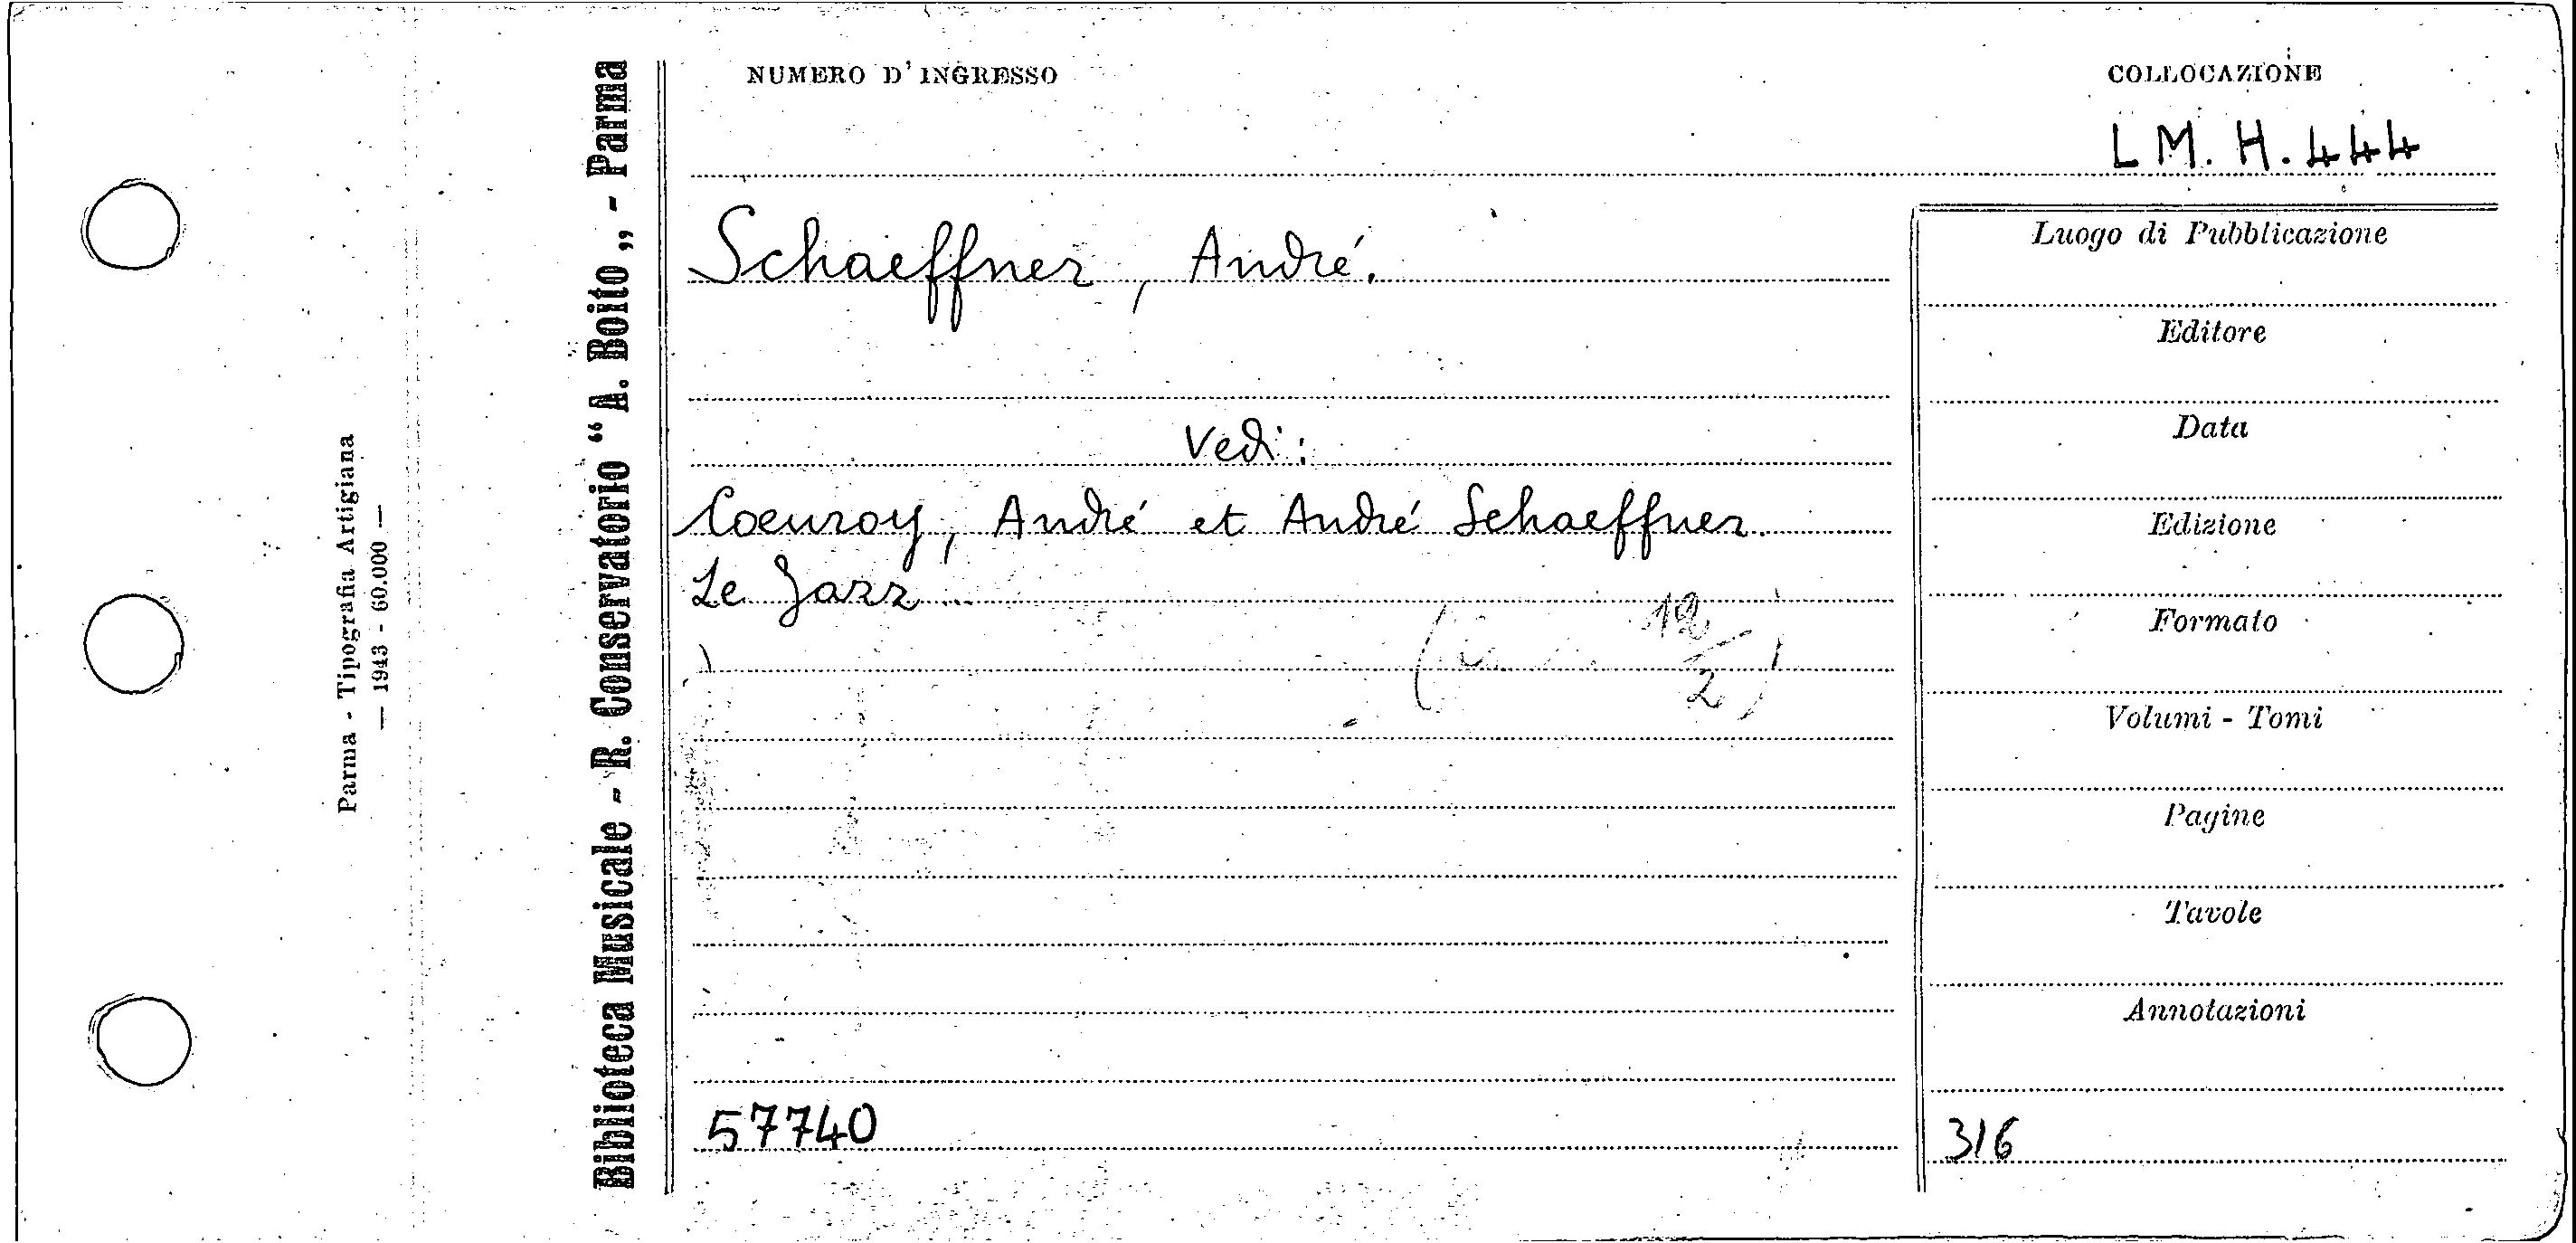 NUMERO D'INGRESSO
COLLOCAZIONE
L M. H. 444
Schaeffner, André.
Vedi:
Coeuroy, André et André Schaeffner.
Le Jazz ...
12
2
57740
Luogo di Pubblicazione
Editore
Data
Edizione
Formato
Volumi - Tomi
Pagine
Tavole
Annotazioni
316
Biblioteca Musicale - R. Conservatorio “ A. Boito „ - Parma
Parma - Tipografia Artigiana
— 1943 - 60.000 —